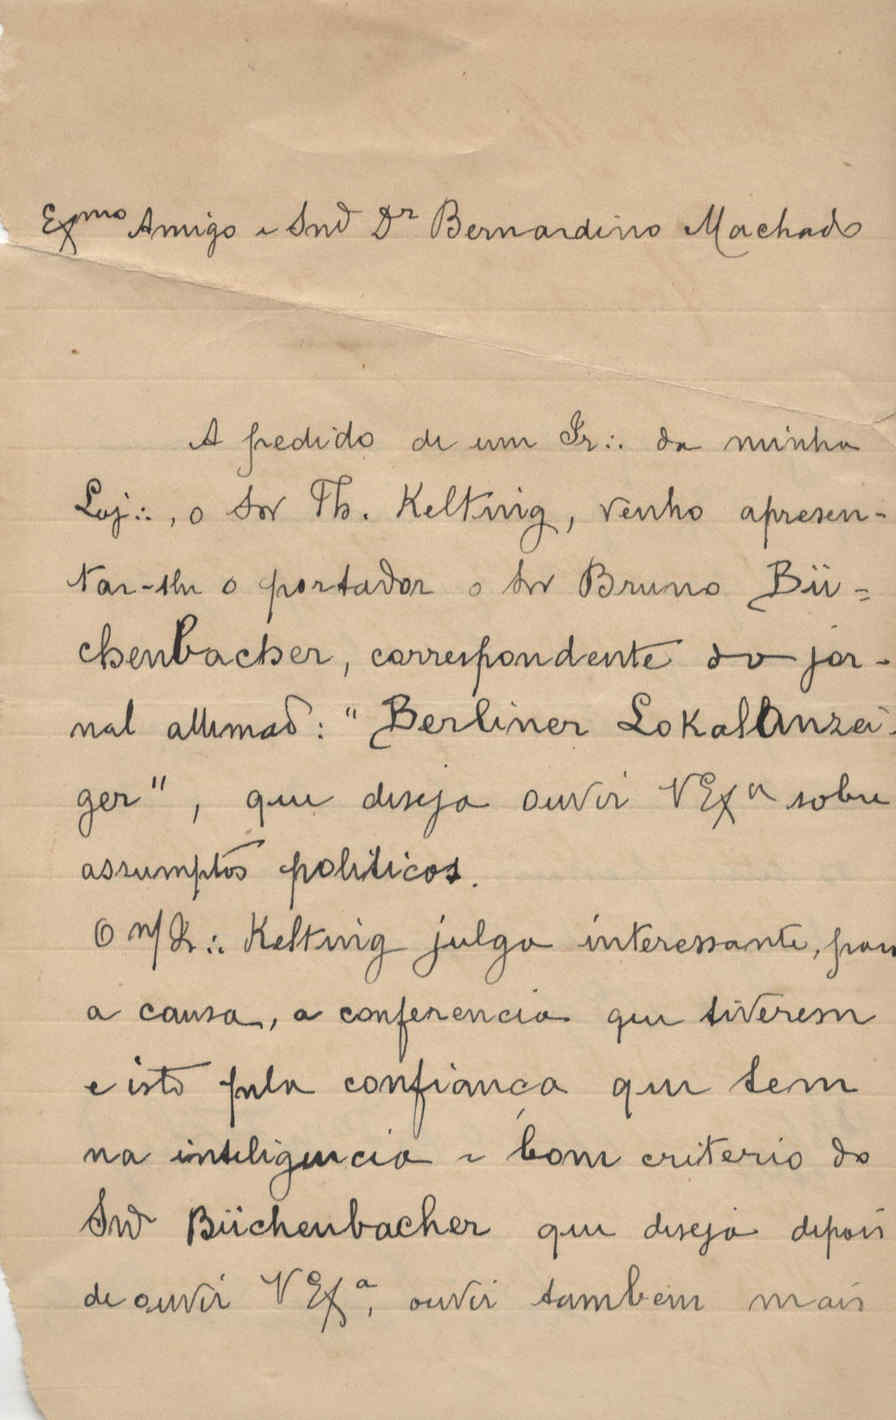 Exmo Amigo e Snr Dr Bernardino Machado
A pedido de um Ir∴ da minha
Loj∴, o Snr Th. Keltwig, venho apresen-
tar-lhe o portador o Snr Bruno Bü=
chenbacher, correspondente do jor-
nal allemão: "Berliner LokalAnzei-
ger", que deseja ouvir VExa sobre
assumptos politicos.
O n/Ir∴ Keltwig julga interessante, para
a causa, a conferencia que tiverem
e isto pela confiança que tem
na inteligencia e bom criterio do
Snr Büchenbacher que deseja depois
de ouvir VExa, ouvir tambem mais